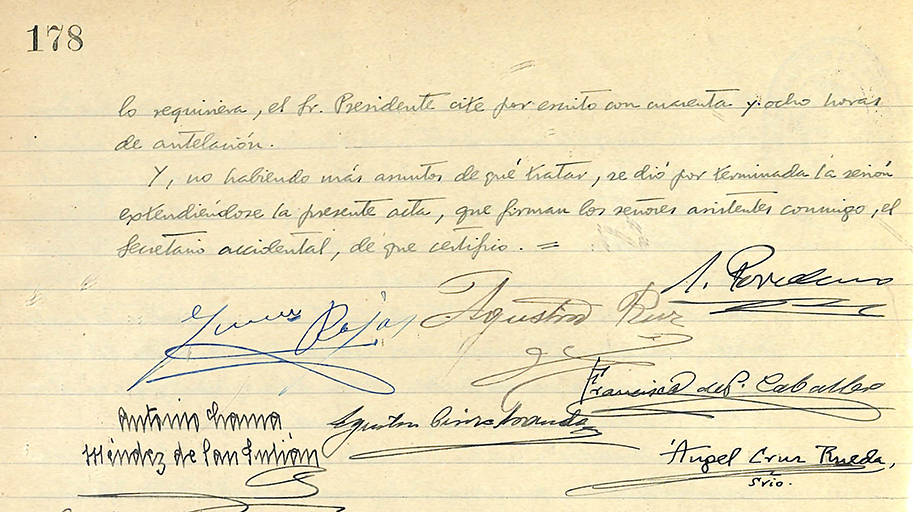 178
lo requiriera, el Sr. Presidente cite por escrito con cuarenta y ocho horas
de antelación.
Y, no habiendo más asuntos de qué tratar, se dió por terminada la sesión
extendiéndose la presente acta, que firman los señores asistentes conmigo, el
Secretario accidental, de que certifico. =
Rojas Agustín Ruiz
Francisco de P. Caballero
Antonio Lama
Méndez de San Julián
Agustín
Ángel Cruz Rueda,
Srio.